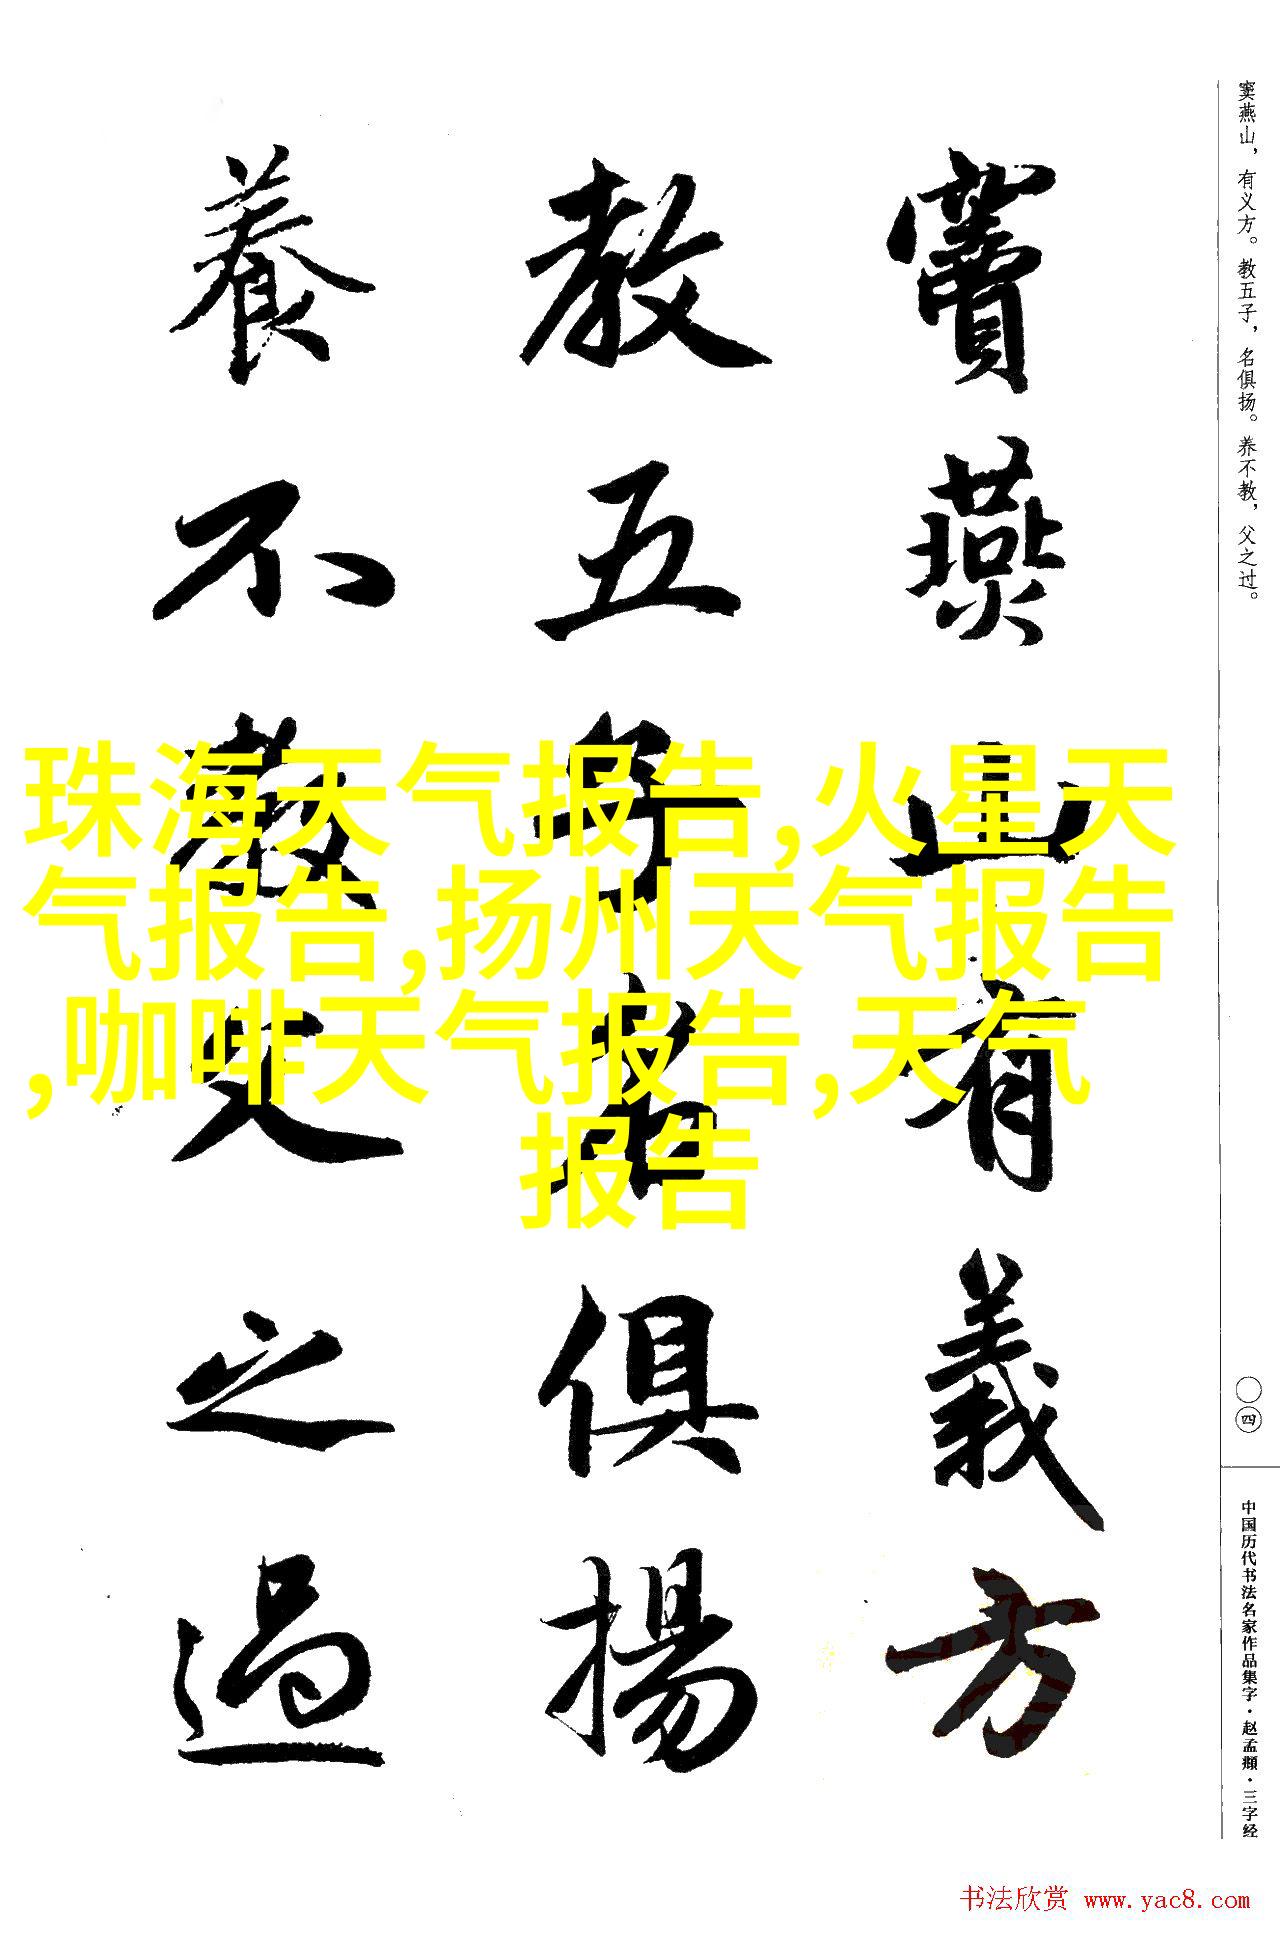 窦燕山，有义方。教五子，名俱扬。养不教，父之过。
竇燕山有義方
教五子名俱揚
養不教父之過
珠海天气报告,火星天
气报告,扬州天气报告
,咖啡天气报告,天气
报告
〇四
中国历代书法名家作品集字·赵孟頫·三字经
书法欣赏 www.yac8.com